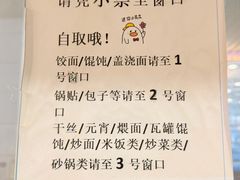 请凭小票至窗口
自取哦！
饺面/馄饨/盖浇面请至1
号窗口
锅贴/包子等请至 2 号窗口
干丝/元宵/煨面/瓦罐馄
饨/炒面/米饭类/炒菜类/
砂锅类请至 3 号窗口